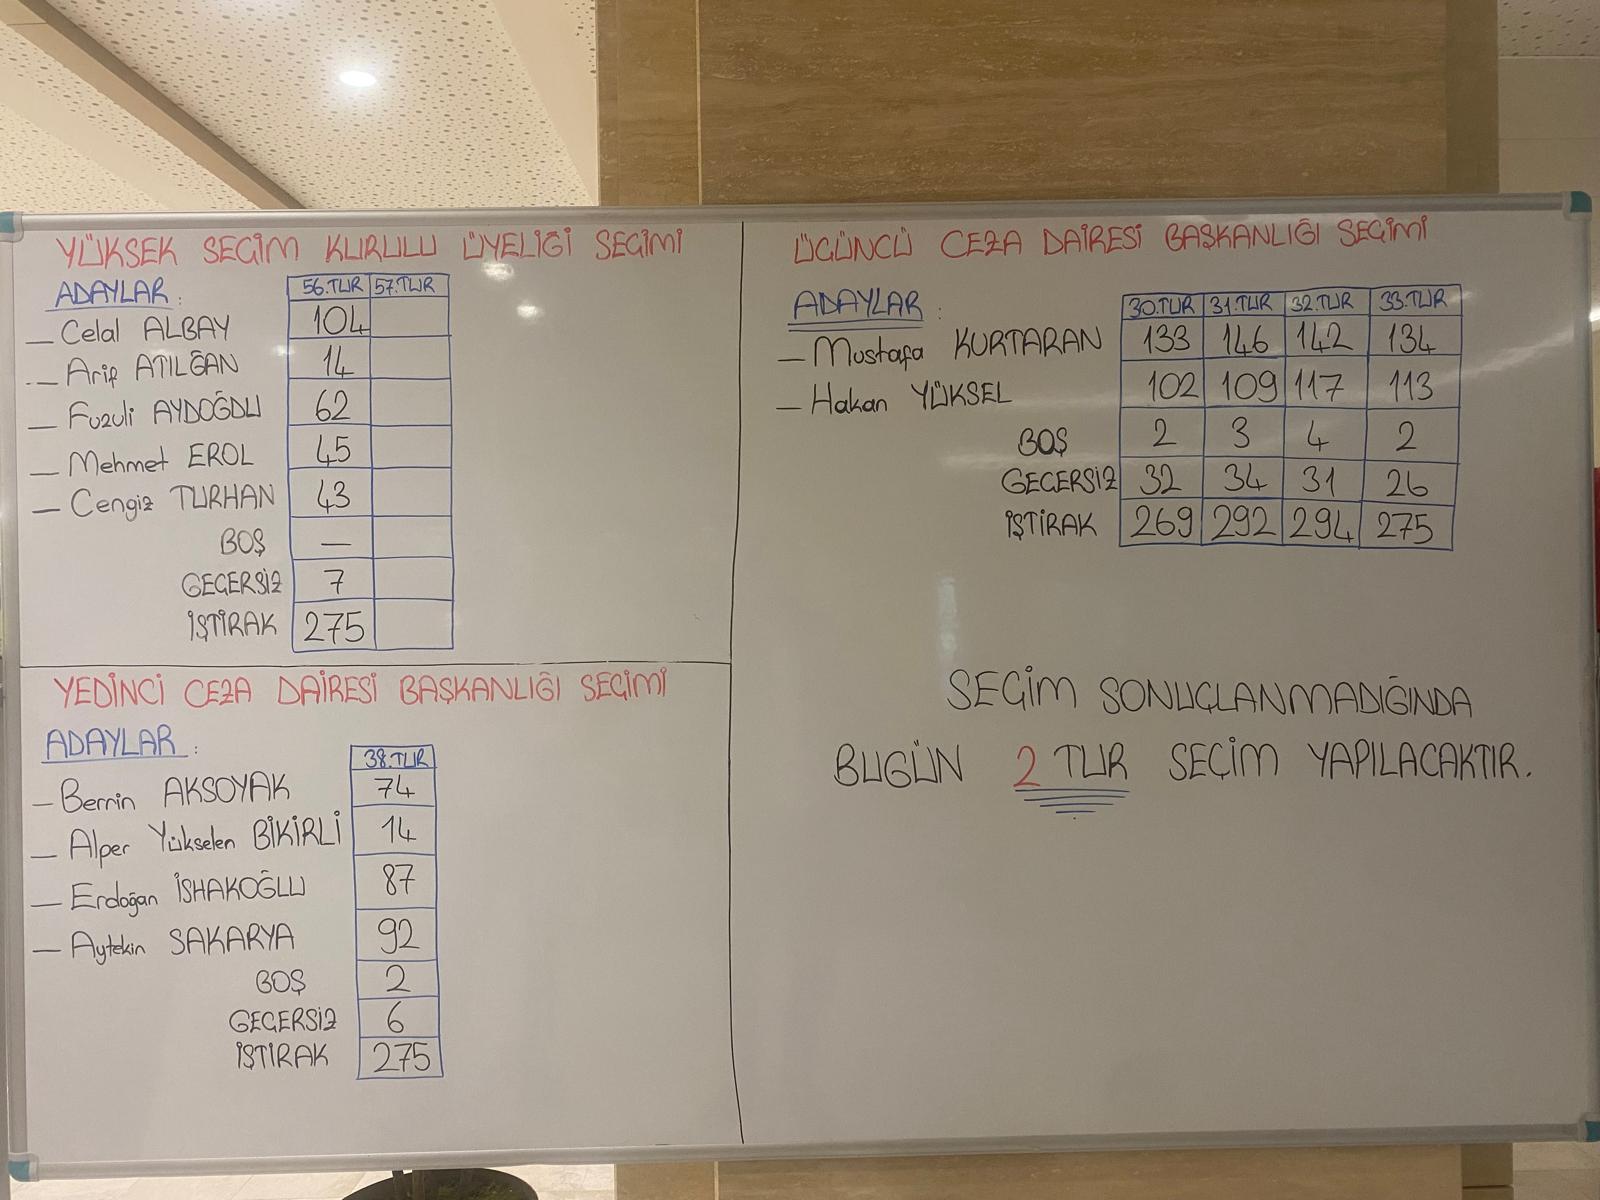 YÜKSEK SEÇİM KURULU ÜYELİĞİ SEÇİMİ
ADAYLAR : 56.TUR 57.TUR
— Celal ALBAY 104
— Arif ATILĞAN 14
— Fuzuli AYDOĞDU 62
— Mehmet EROL 45
— Cengiz TURHAN 43
BOŞ —
GEÇERSİZ 7
İŞTİRAK 275
YEDİNCİ CEZA DAİRESİ BAŞKANLIĞI SEÇİMİ
ADAYLAR : 38.TUR
— Berrin AKSOYAK 74
— Alper Yükselen BİKİRLİ 14
— Erdoğan İSHAKOĞLU 87
— Aytekin SAKARYA 92
BOŞ 2
GEÇERSİZ 6
İŞTİRAK 275
ÜÇÜNCÜ CEZA DAİRESİ BAŞKANLIĞI SEÇİMİ
ADAYLAR : 30.TUR 31.TUR 32.TUR 33.TUR
— Mustafa KURTARAN 133 146 142 134
— Hakan YÜKSEL 102 109 117 113
BOŞ 2 3 4 2
GEÇERSİZ 32 34 31 26
İŞTİRAK 269 292 294 275
SEÇİM SONUÇLANMADIĞINDA
BUGÜN 2 TUR SEÇİM YAPILACAKTIR.